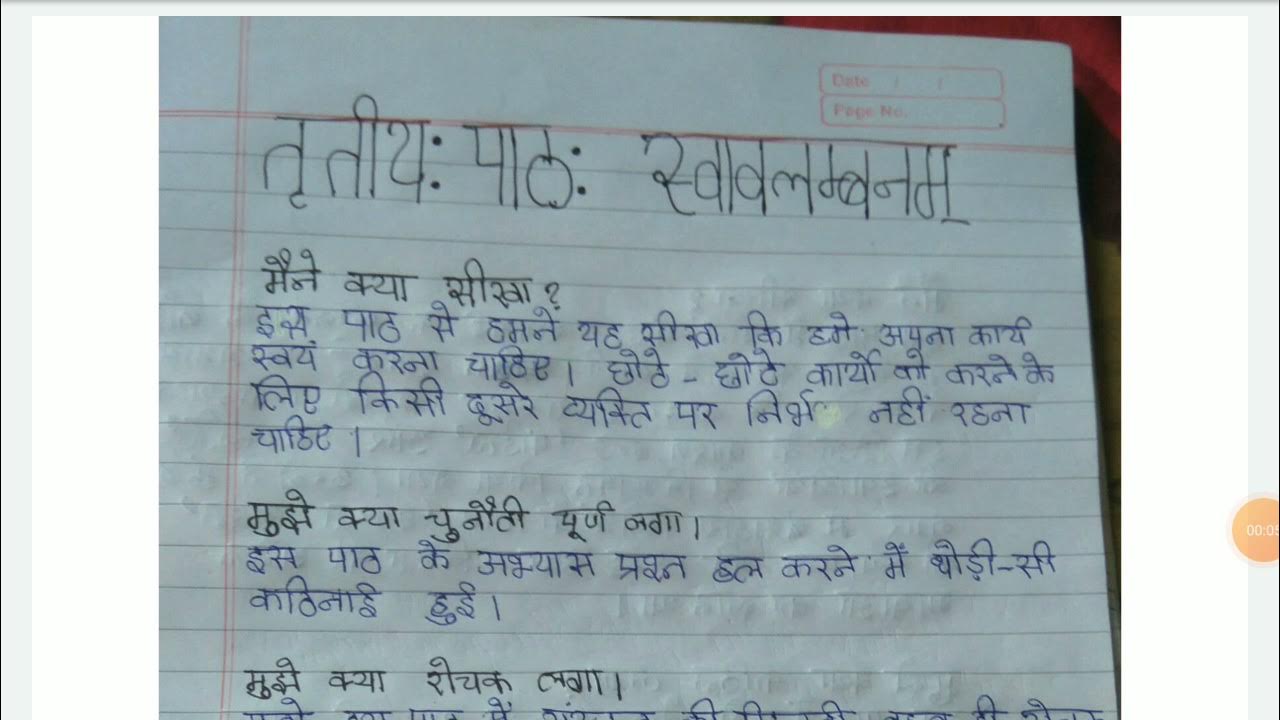 Date / /
Page No.
तृतीयः पाठः स्वावलम्बनम्
मैने क्या सीखा?
इस पाठ से हमने यह सीखा कि हमे अपना कार्य
स्वयं करना चाहिए। छोटे - छोटे कार्यो को करने के
लिए किसी दूसरे व्यक्ति पर निर्भ नहीं रहना
चाहिए।
मुझे क्या चुनौती पूर्ण लगा।
इस पाठ के अभ्यास प्रश्न हल करने में थोड़ी-सी
कठिनाई हुई।
मुझे क्या रोचक लगा।
00:05